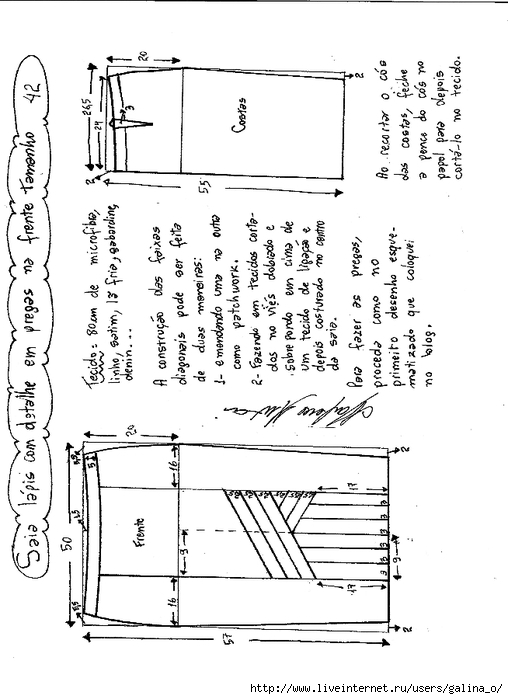 Saia lápis com detalhe em pregas na frente tamanho 42
Tecido = 80cm de microfibra,
linho, satim, lã fria, gabardine,
denin...
A construção das faixas
diagonais pode ser feita
de duas maneiras:
1- emendando uma na outra
como patchwork.
2- Fazendo em tecidos corta-
dos no viés dobrado e
sobrepondo em cima de
um tecido de ligação e
depois costurado no centro
da saia.
Para fazer as pregas,
proceda como no
primeiro desenho esque-
matizado que coloquei
no blog.
26,5
24
20
3
2
Costas
55
2
Ao recortar o cós
das costas, feche
a pence do cós no
papel para depois
cortá-lo no tecido.
50
20
5
16
Frente
9
16
17
17
3
3
3
9
57
2
2
http://www.liveinternet.ru/users/galina_o/